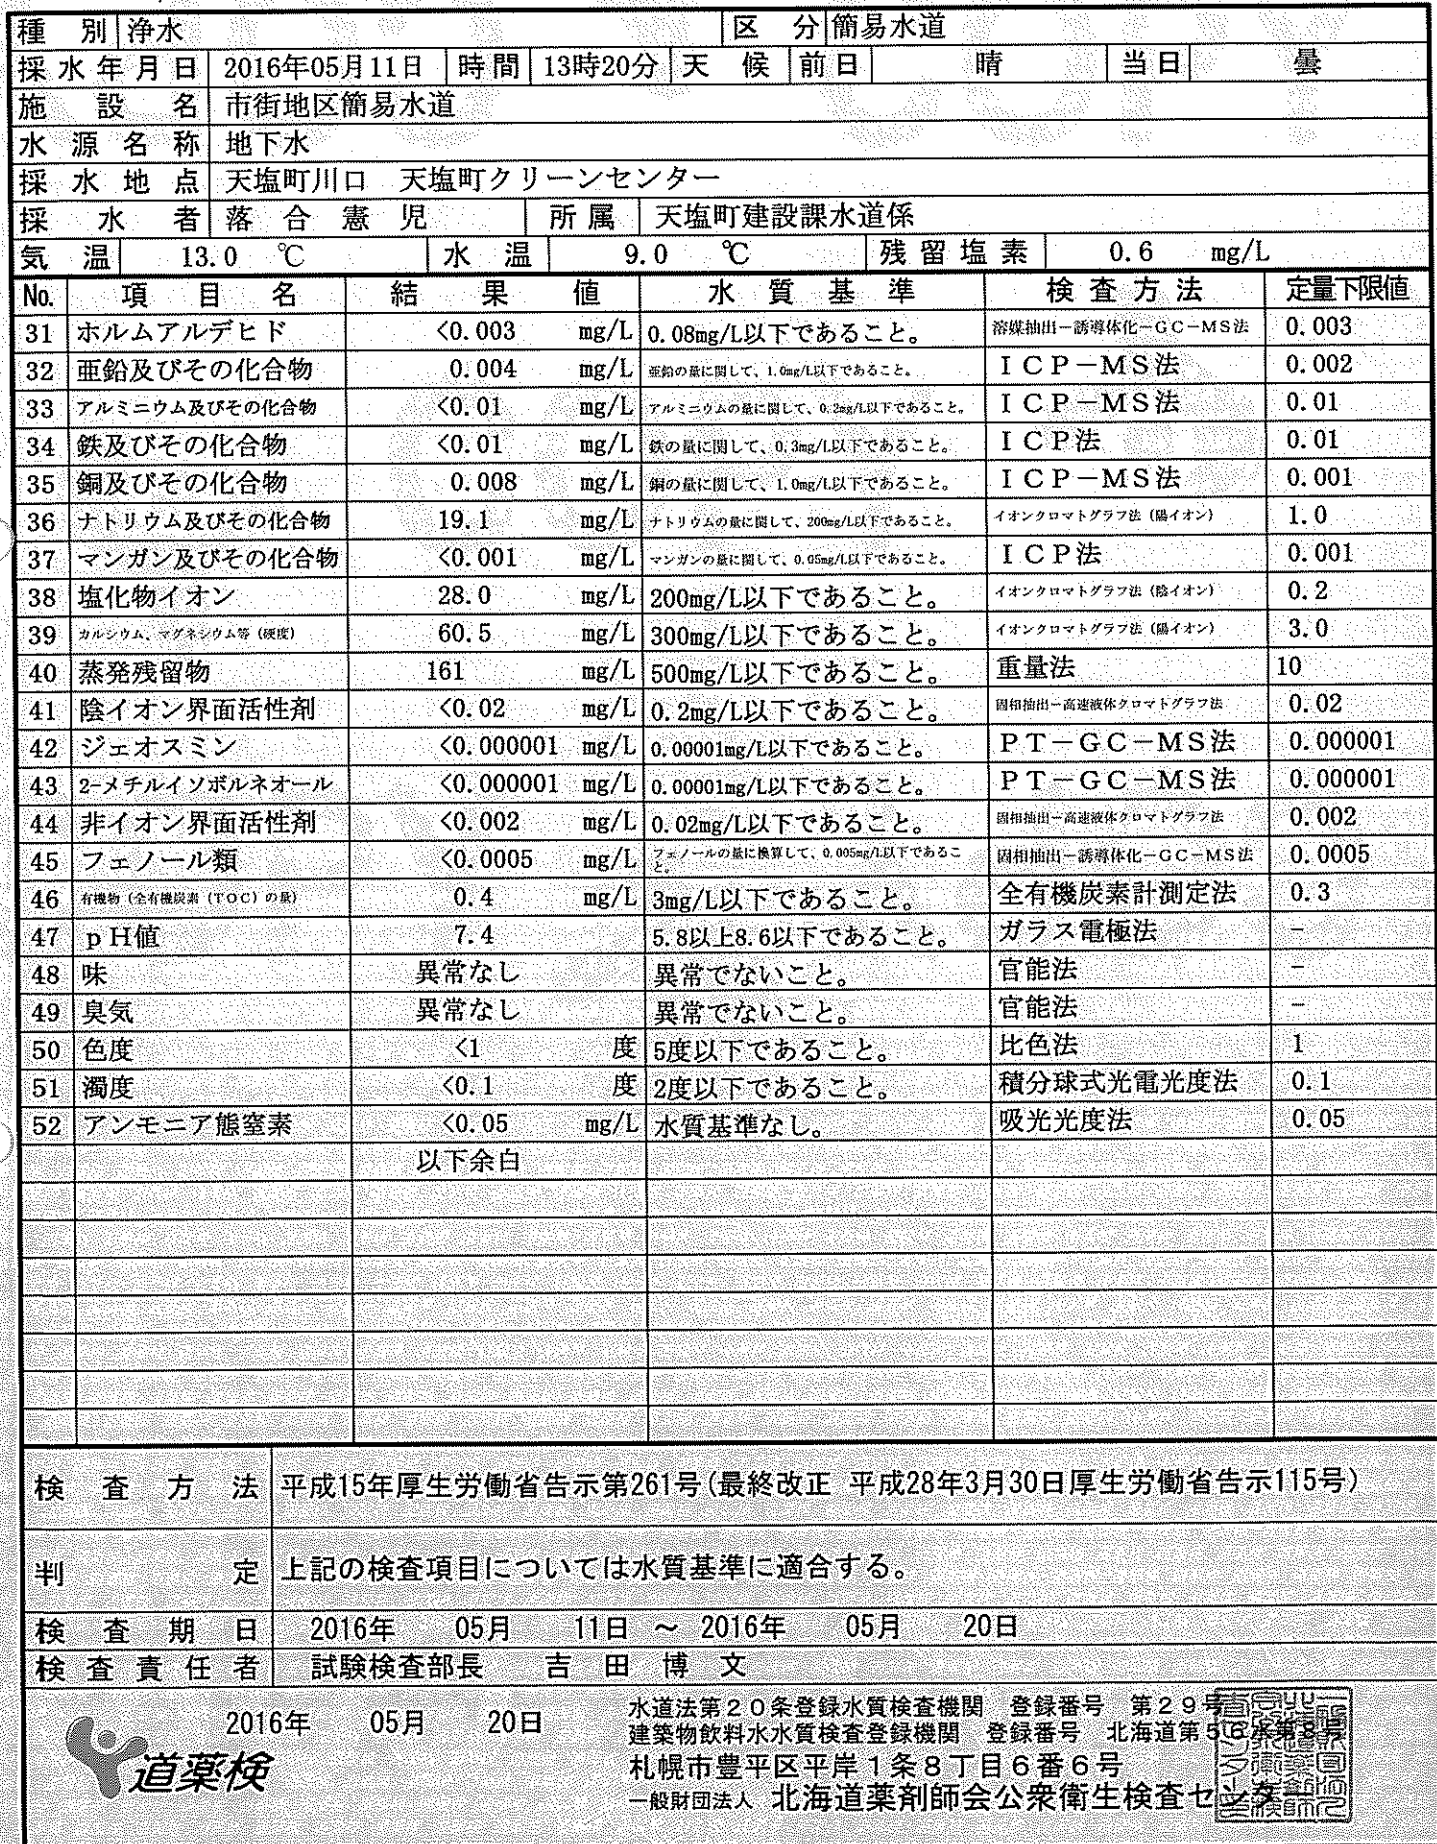 種別 浄水 区分 簡易水道
採水年月日 2016年05月11日 時間 13時20分 天候 前日 晴 当日 曇
施設名 市街地区簡易水道
水源名称 地下水
採水地点 天塩町川口 天塩町クリーンセンター
採水者 落合憲児 所属 天塩町建設課水道係
気温 13.0 ℃ 水温 9.0 ℃ 残留塩素 0.6 mg/L
No. 項目名 結果値 水質基準 検査方法 定量下限値
31 ホルムアルデヒド <0.003 mg/L 0.08mg/L以下であること。 溶媒抽出－誘導体化－GC－MS法 0.003
32 亜鉛及びその化合物 0.004 mg/L 亜鉛の量に関して、1.0mg/L以下であること。 ICP－MS法 0.002
33 アルミニウム及びその化合物 <0.01 mg/L アルミニウムの量に関して、0.2mg/L以下であること。 ICP－MS法 0.01
34 鉄及びその化合物 <0.01 mg/L 鉄の量に関して、0.3mg/L以下であること。 ICP法 0.01
35 銅及びその化合物 0.008 mg/L 銅の量に関して、1.0mg/L以下であること。 ICP－MS法 0.001
36 ナトリウム及びその化合物 19.1 mg/L ナトリウムの量に関して、200mg/L以下であること。 イオンクロマトグラフ法（陽イオン） 1.0
37 マンガン及びその化合物 <0.001 mg/L マンガンの量に関して、0.05mg/L以下であること。 ICP法 0.001
38 塩化物イオン 28.0 mg/L 200mg/L以下であること。 イオンクロマトグラフ法（陰イオン） 0.2
39 カルシウム、マグネシウム等（硬度） 60.5 mg/L 300mg/L以下であること。 イオンクロマトグラフ法（陽イオン） 3.0
40 蒸発残留物 161 mg/L 500mg/L以下であること。 重量法 10
41 陰イオン界面活性剤 <0.02 mg/L 0.2mg/L以下であること。 固相抽出－高速液体クロマトグラフ法 0.02
42 ジェオスミン <0.000001 mg/L 0.00001mg/L以下であること。 PT－GC－MS法 0.000001
43 2-メチルイソボルネオール <0.000001 mg/L 0.00001mg/L以下であること。 PT－GC－MS法 0.000001
44 非イオン界面活性剤 <0.002 mg/L 0.02mg/L以下であること。 固相抽出－高速液体クロマトグラフ法 0.002
45 フェノール類 <0.0005 mg/L フェノールの量に換算して、0.005mg/L以下であること。 固相抽出－誘導体化－GC－MS法 0.0005
46 有機物（全有機炭素（TOC）の量） 0.4 mg/L 3mg/L以下であること。 全有機炭素計測定法 0.3
47 pH値 7.4 5.8以上8.6以下であること。 ガラス電極法 －
48 味 異常なし 異常でないこと。 官能法 －
49 臭気 異常なし 異常でないこと。 官能法 －
50 色度 <1 度 5度以下であること。 比色法 1
51 濁度 <0.1 度 2度以下であること。 積分球式光電光度法 0.1
52 アンモニア態窒素 <0.05 mg/L 水質基準なし。 吸光光度法 0.05
以下余白
検査方法 平成15年厚生労働省告示第261号(最終改正 平成28年3月30日厚生労働省告示115号)
判定 上記の検査項目については水質基準に適合する。
検査期日 2016年 05月 11日 ～ 2016年 05月 20日
検査責任者 試験検査部長 吉田博文
2016年 05月 20日
道薬検
水道法第２０条登録水質検査機関 登録番号 第２９号
建築物飲料水水質検査登録機関 登録番号 北海道第５６水第８号
札幌市豊平区平岸１条８丁目６番６号
一般財団法人 北海道薬剤師会公衆衛生検査センター